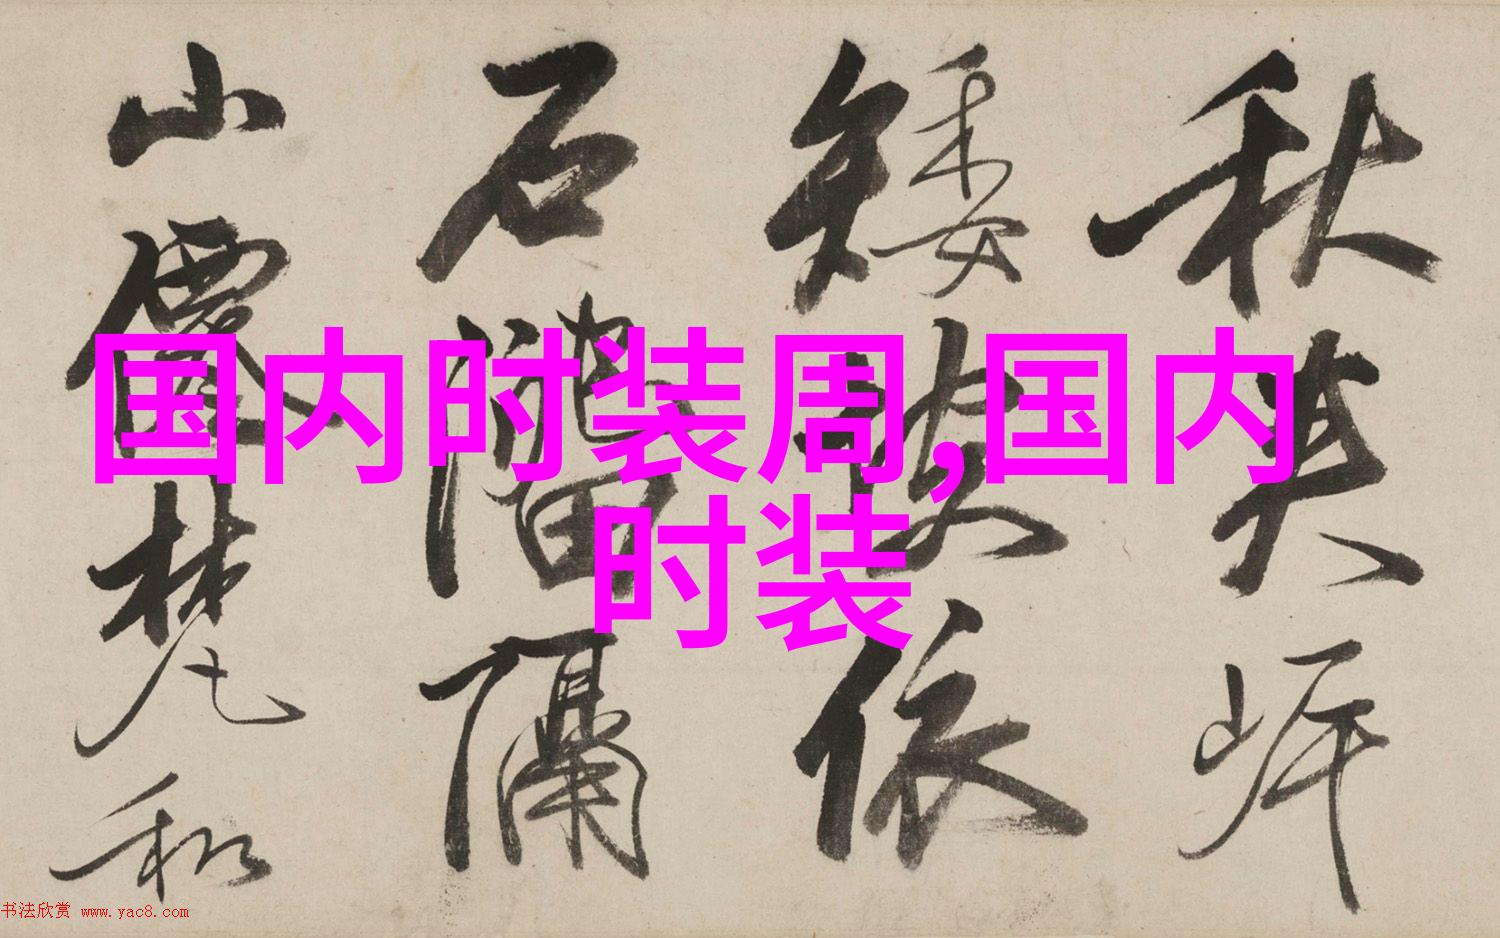 国内时装周,国内
时装
秋其岍
矮披依
石隔
山僊梵和
书法欣赏 www.yac8.com